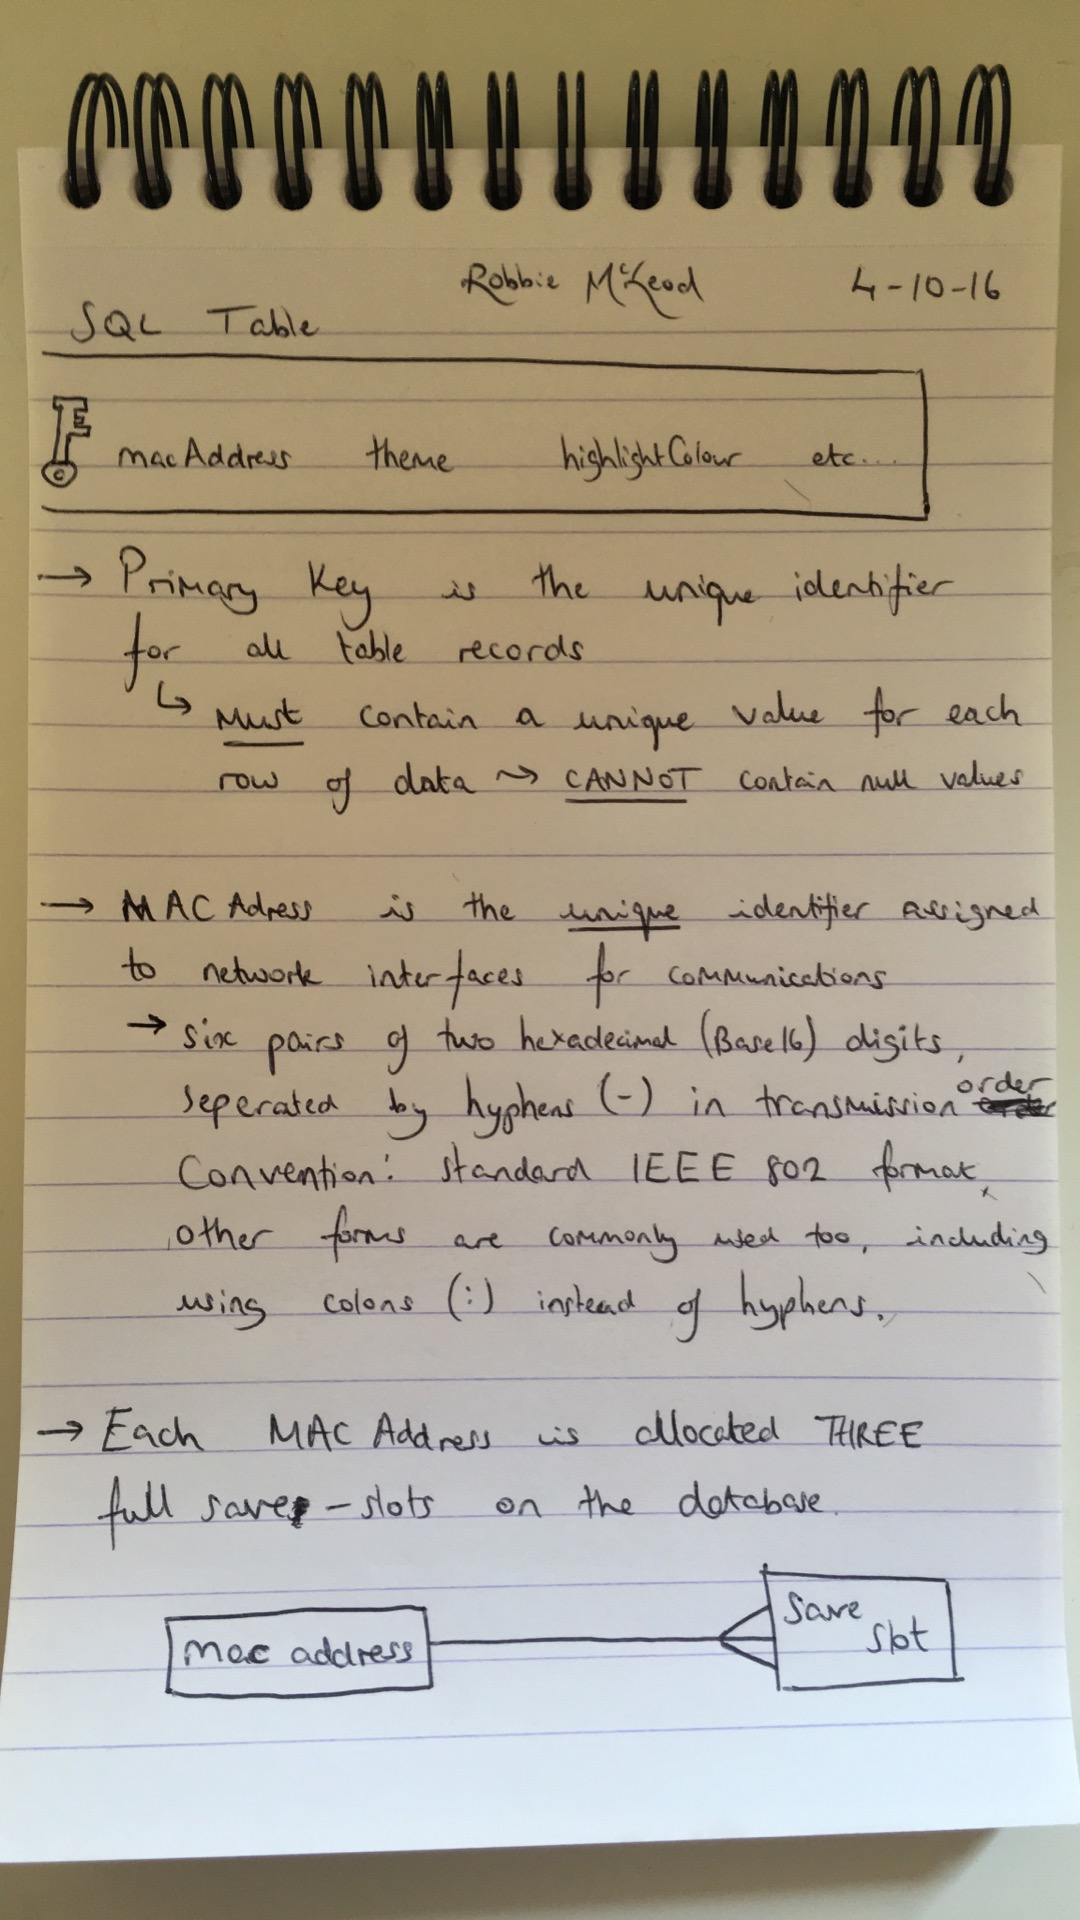 Robbie McLeod 4-10-16
SQL Table
macAddress theme highlightColour etc...
→ Primary Key is the unique identifier
for all table records
↳ Must contain a unique value for each
row of data ⤳ CANNOT contain null values
→ MAC Adress is the unique identifier assigned
to network interfaces for communications
→ six pairs of two hexadecimal (Base16) digits,
seperated by hyphens (-) in transmission order
Convention: standard IEEE 802 format,
other forms are commonly used too, including
using colons (:) instead of hyphens.
→ Each MAC Address is allocated THREE
full save-slots on the database.
mac address
Save
Slot